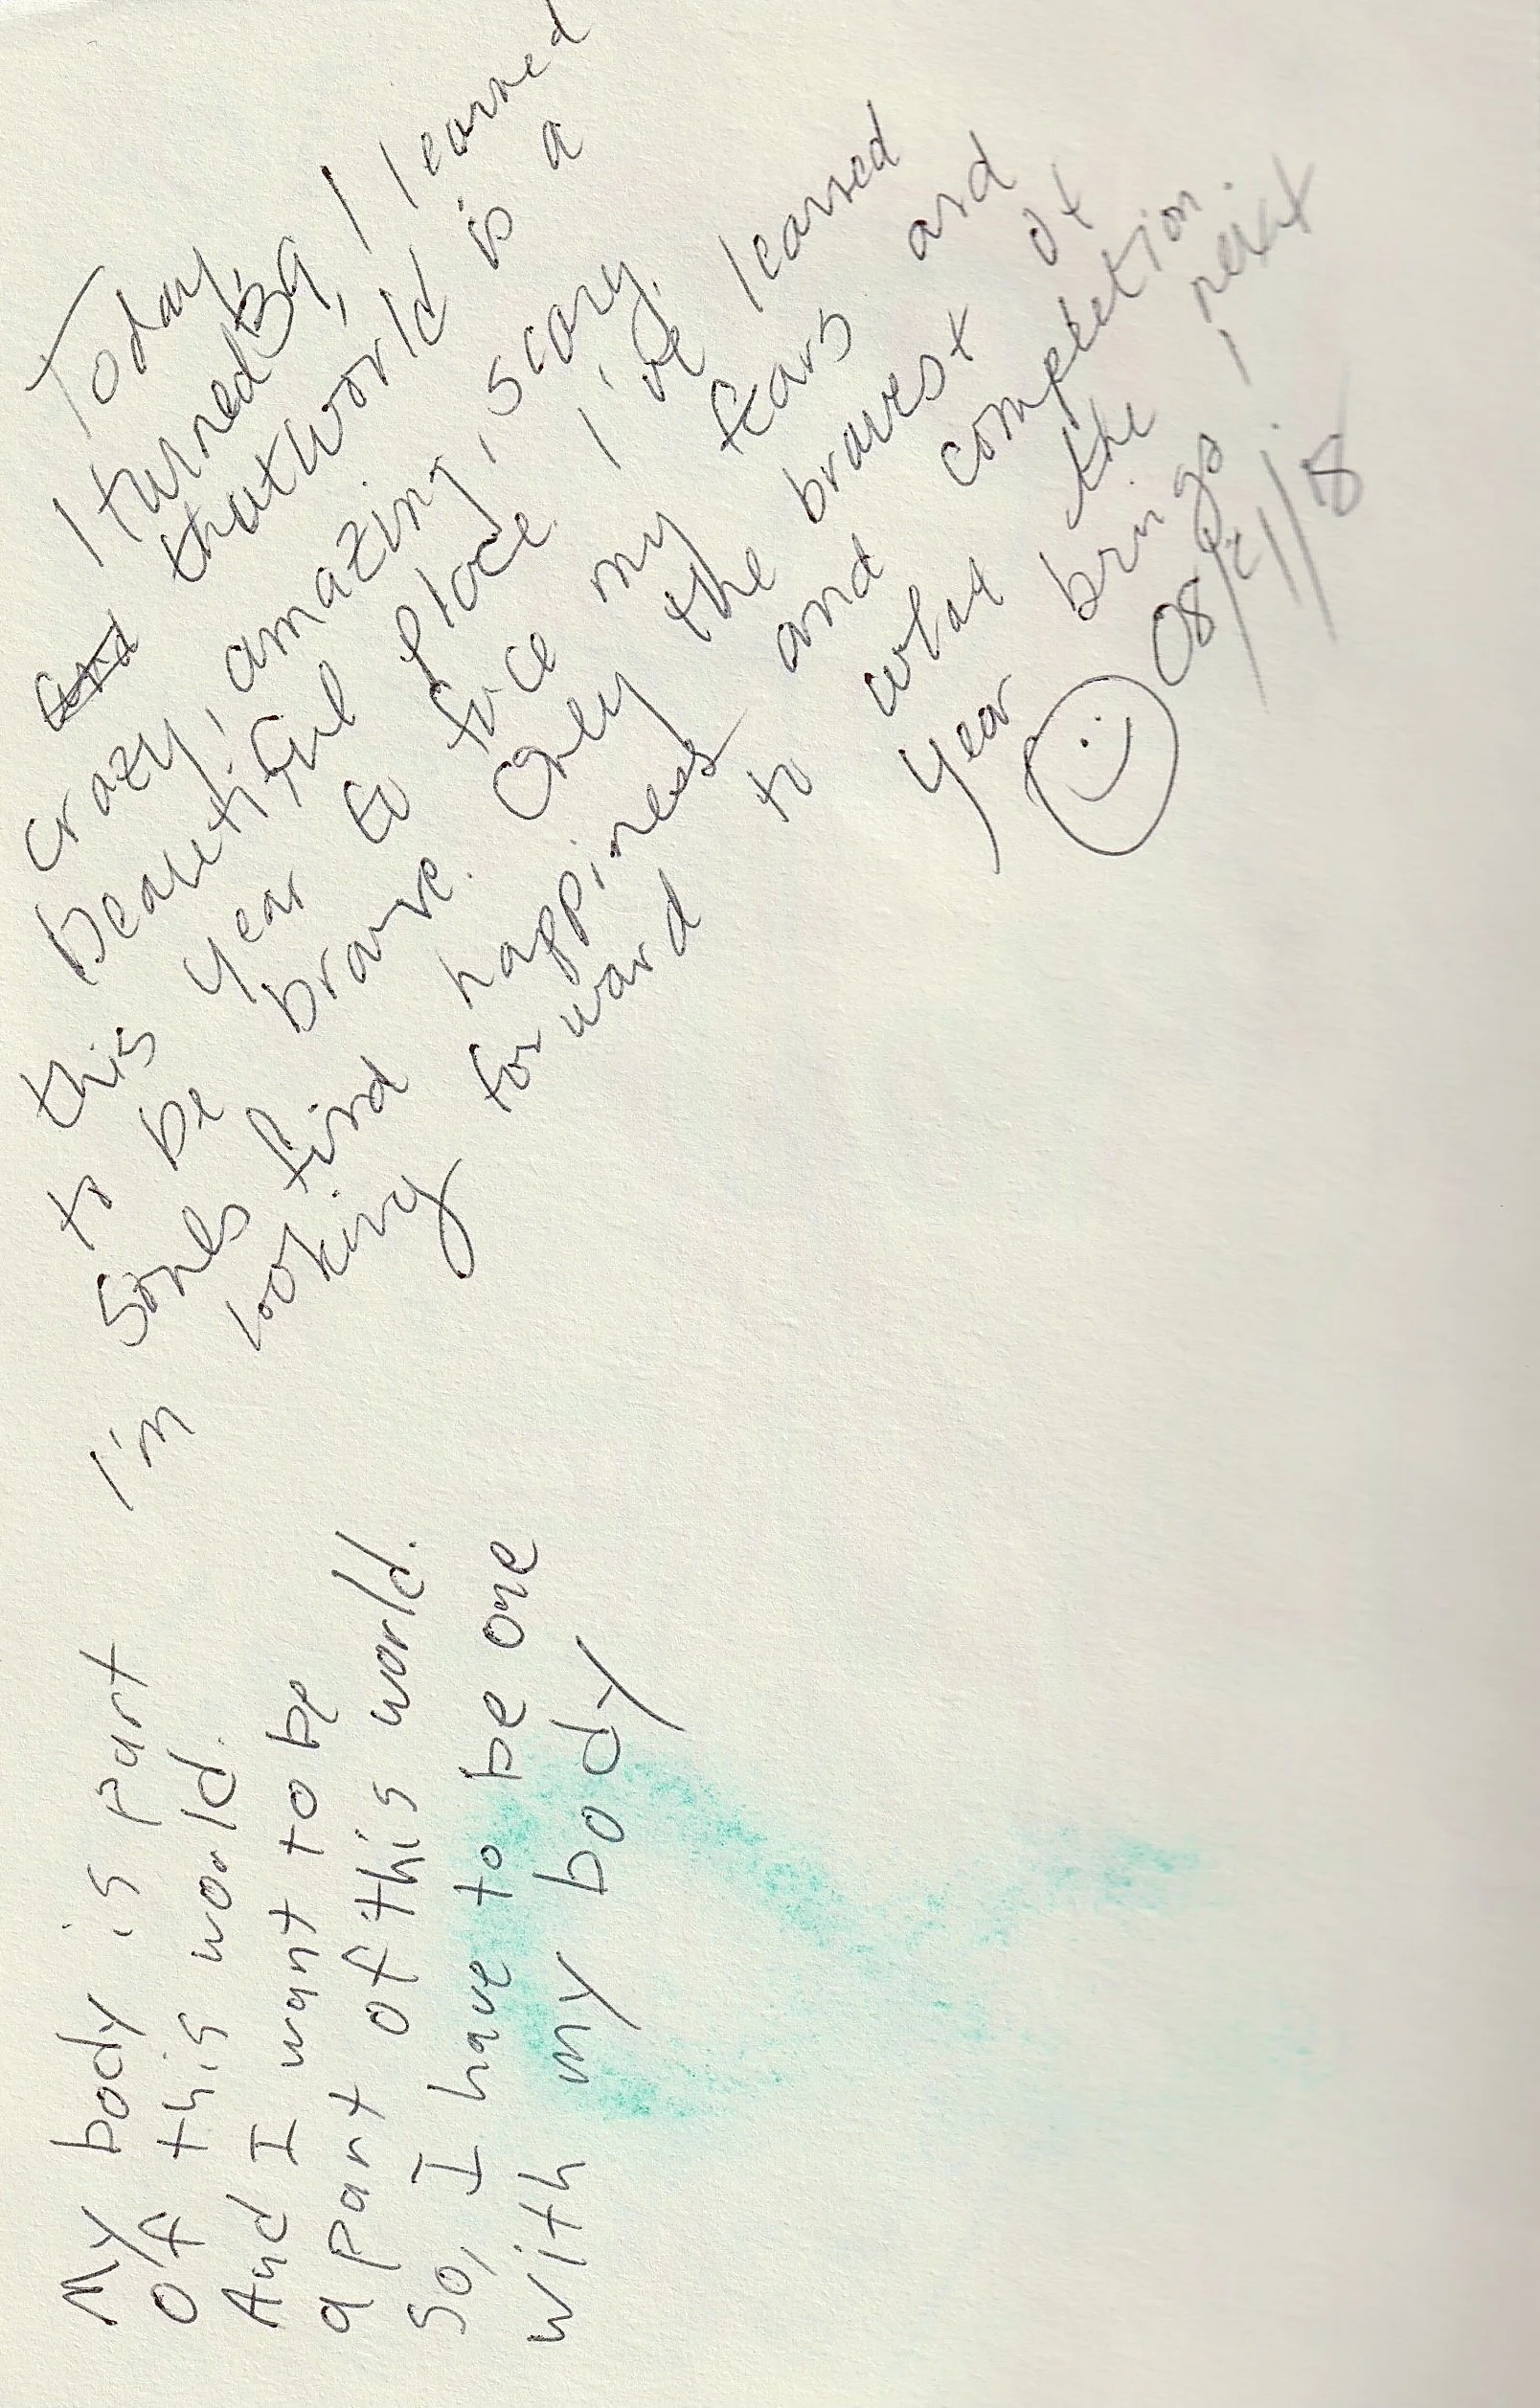 Today,
I turned 39, I learned
and that world is a
crazy, amazing, scary,
beautiful place. I've learned
this year to face my fears and
to be brave. Only the bravest of
souls find happiness and completion.
I'm looking forward to what the next
year brings!
08/21/18
My body is part
of this world.
And I want to be
a part of this world.
So, I have to be one
with my body